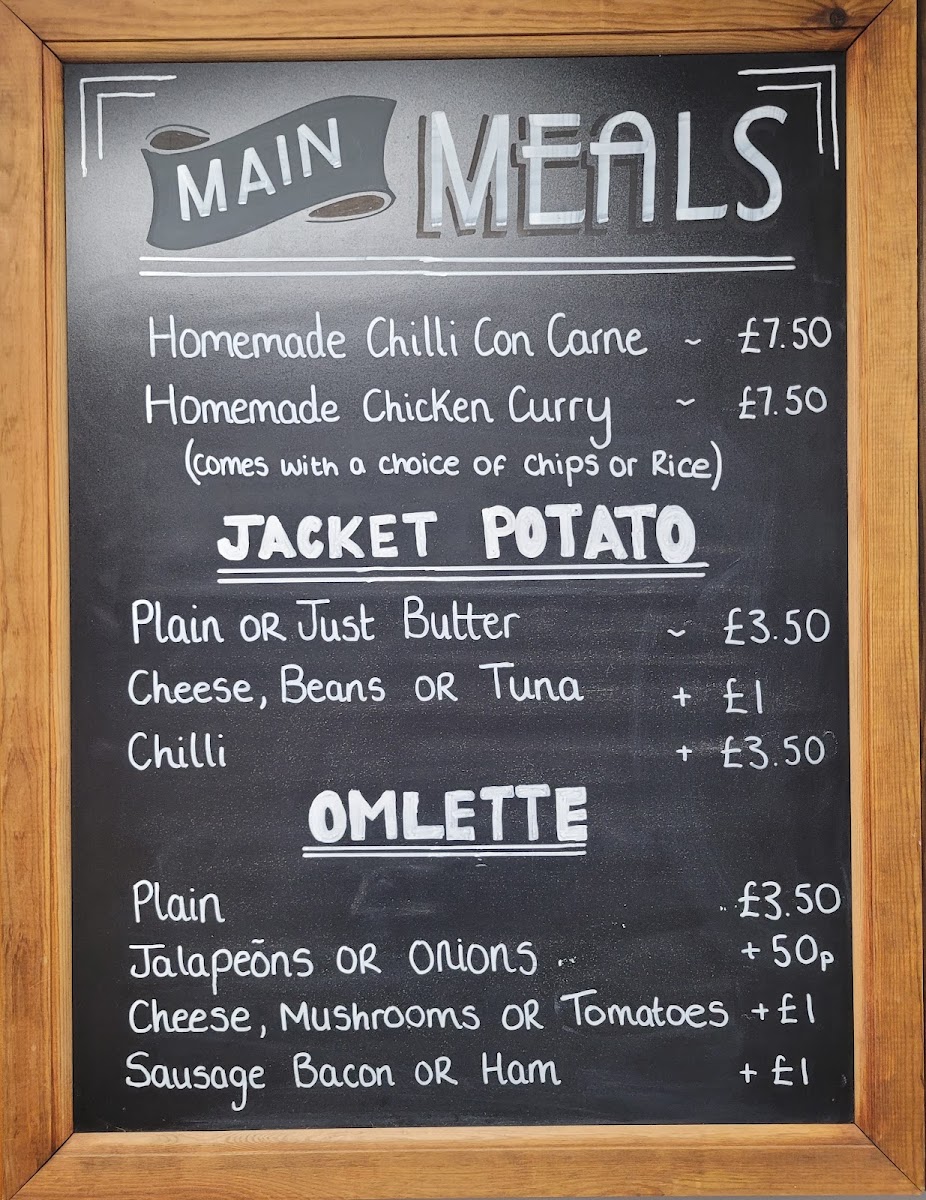 MAIN MEALS
Homemade Chilli Con Carne ~ £7.50
Homemade Chicken Curry ~ £7.50
(comes with a choice of chips or Rice)
JACKET POTATO
Plain OR Just Butter ~ £3.50
Cheese, Beans OR Tuna + £1
Chilli + £3.50
OMLETTE
Plain £3.50
Jalapeõns OR Onions + 50p
Cheese, Mushrooms OR Tomatoes + £1
Sausage Bacon OR Ham + £1